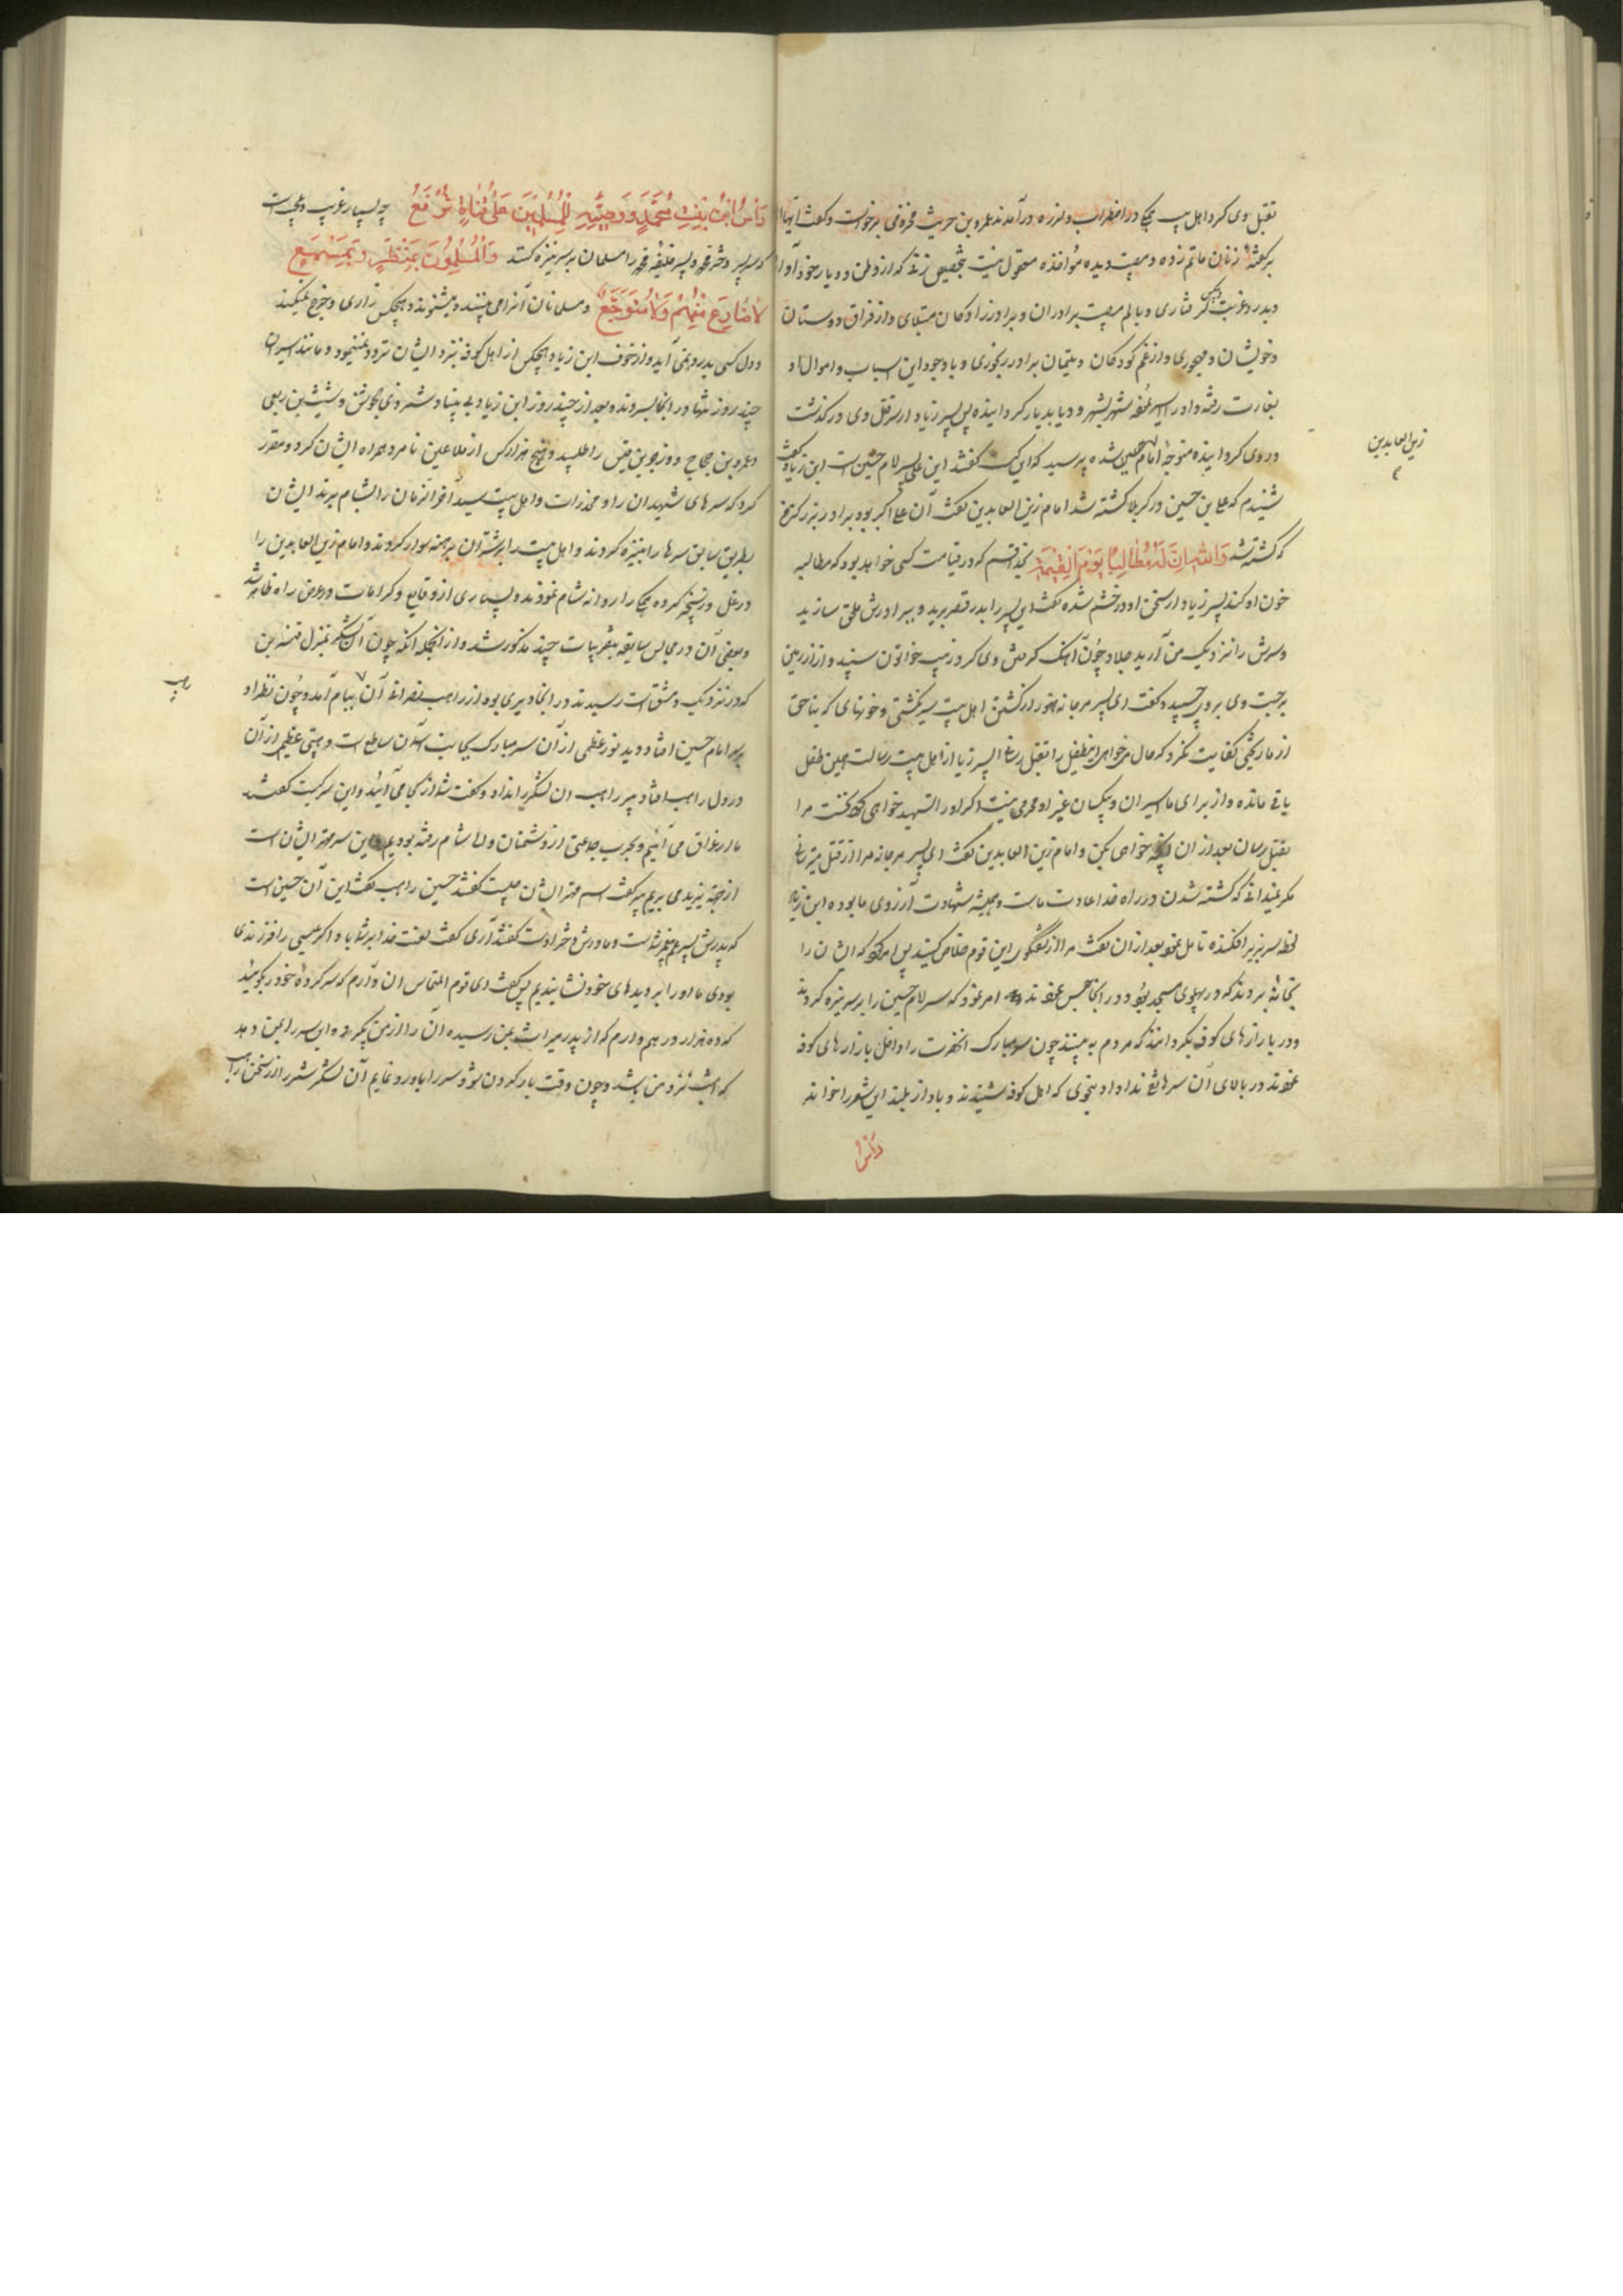 بقتل وی کرد اهل بیت همه در اضطراب و لرزه درآمدند عمرو بن حریث مخزومی برخواست و گفت ایها الامیر
بر گفتهٔ زنان ماتم زده و مصیبت دیده مؤاخذه معقول نیست بتخصیص زنی که از وطن و دیار خود آواره
و بدرد غربت و بیکسی گرفتاری و بالم مصیبت برادران و برادرزادگان مبتلای و از فراق دوستان
و خویشان و مهجوری و از غم کودکان و یتیمان برادر رنجوری و با وجود این اسباب و اموال او
بغارت رفته و او را اسیر نموده شهر بشهر و دیار بدیار گردانیده پس پسر زیاد از سر قتل وی درگذشت
و روی گردانیده متوجه امام شده پرسید که این کیست گفتند این علی پسر امام حسین است ابن زیاد گفت
شنیدم که علی بن حسین در کربلا کشته شد امام زین العابدین گفت آن علی اکبر بود برادر بزرگتر من
که کشته شد وَاللّٰهِ اِنَّ لَهُ مُطَالِبًا یَوْمَ الْقِیٰمَةِ بخدا قسم که در قیامت کسی خواهد بود که مطالبه
خون او کند پسر زیاد از سخن او در خشم شده گفت این پسر را بدر قصر برید و ببرادرش ملحق سازید
و سرش را نزدیک من آرید جلاد چون آهنگ گرفتن وی کرد زینب خواتون سپند وار از زمین
برجست و بر وی چسپید و گفت ای پسر مرجانه هنوز از کشتن اهل بیت سیر نگشتی و خونهای که بناحق
از ما ریختی کفایت نکرد که حال میخواهی این طفل را بقتل رسانی ای پسر زیاد از اهل بیت رسالت همین طفل
باقی مانده و از برای ما اسیران و بیکسان غیر او محرمی نیست اگر او را شهید خواهی کرد نخست مرا
بقتل رسان بعد از ان آنچه خواهی بکن و امام زین العابدین گفت ای پسر مرجانه مرا از قتل میترسانی
مگر نمیدانی که کشته شدن در راه خدا عادت ماست و همیشه شهادت آرزوی ما بوده ابن زیاد
لحظه سر بزیر افکنده تامل نمود بعد از ان گفت مرا از گفتگوی این قوم خلاص کنید پس امر کرد که ایشان را
بخانه بردند که در پهلوی مسجد بود و در انجا حبس نمودند و امر نمود که سر امام حسین را بر سر نیزه کردند
و در بازارهای کوفه بگردانند که مردم به بینند چون سر مبارک انحضرت را داخل بازارهای کوفه
نمودند در بالای آن سر هاتفی ندا داد بنحوی که اهل کوفه شنیدند و باواز بلند این شعر را خواند
وَرَأسُ
زین العابدین
ع
رَأسُ ابْنُ بِنْتِ مُحَمَّدٍ وَوَصِیِّهِ لِلْمُسْلِمِینَ عَلَی قَنَاةٍ تُرْفَعُ چه بسیار غریب و عجب است
که سر پسر دختر محمد و پسر خلیفه محمد را مسلمانان بر سر نیزه کنند وَالْمُسْلِمُونَ بِمَنْظَرٍ وَبِمَسْمَعٍ
لَا ضَارِعَ مِنْهُمْ وَلَا مُتَوَجِّعُ و مسلمانان آنرا می بینند و میشنوند و هیچکس زاری و جزع نمیکند
و دل کسی بدرد نمی آید و از خوف ابن زیاد هیچکس از اهل کوفه نزد ایشان تردد نمینمود و مانند اسیران
چند روز تنها در انجا بسر بردند و بعد از چند روز ابن زیاد بی بنیاد شمر ذی الجوشن و شیث بن ربعی
و عمرو بن حجاج و زجر بن قیس را طلبید و پنج هزار کس از ملاعین نامزد همراه ایشان کرد و مقرر
کرد که سرهای شهیدان را و مخدرات و اهل بیت سید آخر الزمان را بشام برند ایشان
بطریق سابق سرها را بنیزه کردند و اهل بیت را بر شتران برهنه سوار کردند و امام زین العابدین را
در غل و زنجیر کرده همه را روانه شام نمودند و بسیاری از وقایع و کرامات در عرض راه ظاهر شد
و بعضی آن در مجالس سابقه بتقریبات چند مذکور شد و از انجمله آنکه چون آن لشکر بمنزل قنسرین
که در نزدیک دمشق است رسیدند در انجا دیری بود از راهب نصرانی آن ببام آمد و چون نظر او
بر سر امام حسین افتاد دید نور عظمی از آن سر مبارک بجانب آسمان ساطع است و هیبتی عظیم از آن
در دل راهب افتاد پیر راهب ان لشکر را ندا داد و گفت شما از کجا می آئید و این سر کیست گفتند
ما از عراق می آئیم و بحرب جماعتی از دشمنان والی شام رفته بودیم این سر مهتر ایشان است
از جهة یزید می بریم پیر گفت اسم مهتر ایشان چیست گفتند حسین راهب گفت این آن حسین است
که پدرش پسر عم پیغمبر شماست و مادرش دختر اوست گفتند آری گفت لعنت خدا بر شما باد اگر عیسی را فرزندی
بودی ما او را بر دیده های خود نشاندیم پس گفت ای قوم التماس ان دارم که سرکرده خود بگوئید
که ده هزار درهم دارم که از پدر میراث بمن رسیده آن را از من بگیرد و این سر را بمن دهد
که امشب نزد من باشد و چون وقت بار کردن شود سر را باو رد نمایم آن لشکر شرر از سخن راهب
راهب